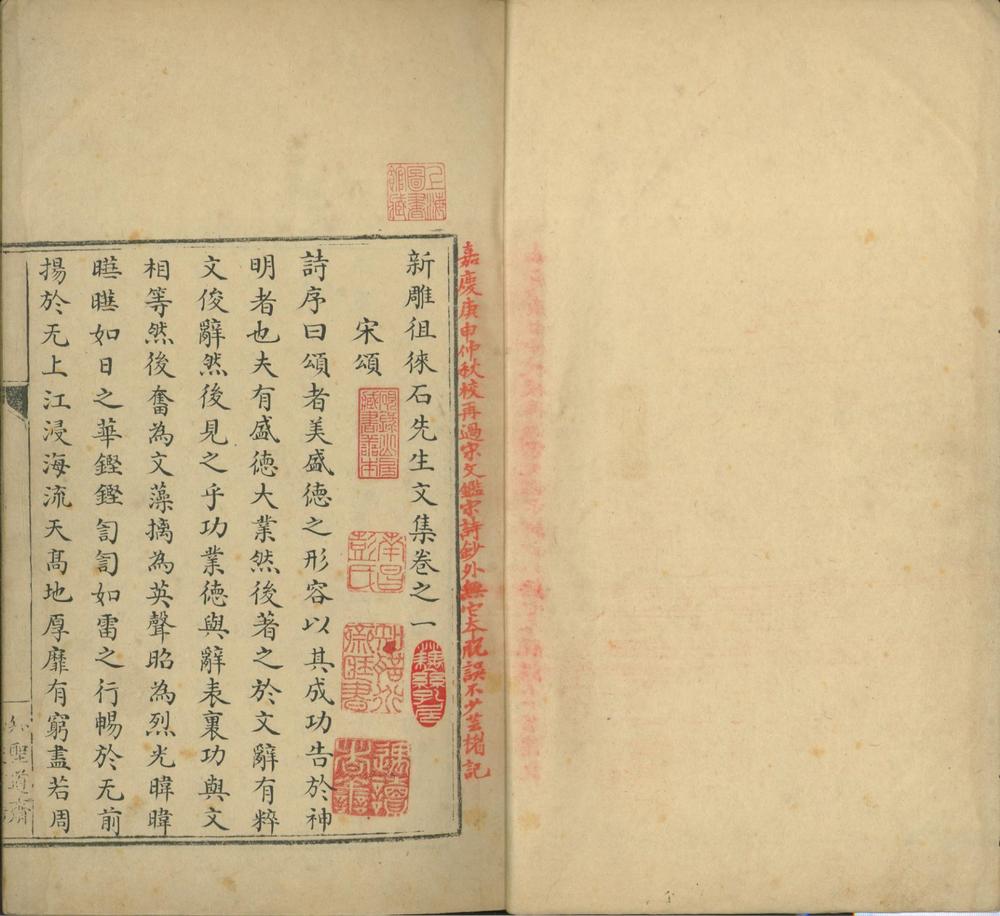 嘉慶庚申仲秋校再過宋文鑑宋詩鈔外無它本脫誤不少芸楣記
上海圖書館藏
新雕徂徠石先生文集卷之一
宋頌
南昌彭氏
知聖道齋藏書
遇讀者善
詩序曰頌者美盛德之形容以其成功告於神
明者也夫有盛德大業然後著之於文辭有粹
文俊辭然後見之乎功業德與辭表裏功與文
相等然後奮為文藻摛為英聲昭為烈光暐暐
曄曄如日之華鏗鏗訇訇如雷之行暢於无前
揚於无上江浸海流天髙地厚靡有窮盡若周
知聖道齋